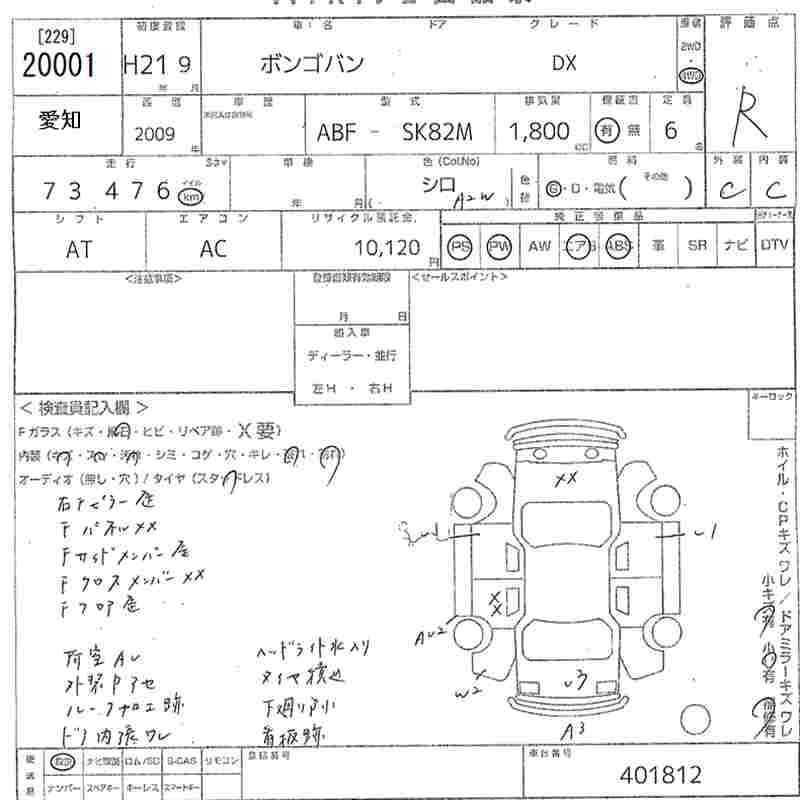 [229]
20001
初度登録
H21 9
年 月
車 名
ボンゴバン
ドア
グレード
DX
2WD
4WD
評 価 点
R
愛知
2009
年
車 歴
型 式
ABF - SK82M
排気量
1,800
cc
保証書
有 無
定 員
6
名
走 行
7 3 4 7 6
マイル
km
車 検
年 月
色 (Col.No)
シロ
A2W
G・D・電気 ( その他 )
外 装
C
内 装
C
シ フ ト
AT
エ ア コ ン
AC
リサイクル預託金
10,120
円
純 正 装 備 品
PS
PW
AW
エアB
ABS
革
SR
ナビ
DTV
<注意事項>
月 日
<セールスポイント>
輸入車
ディーラー・並行
左H ・ 右H
キーロック
＜ 検査員記入欄 ＞
Fガラス (キズ・飛石・ヒビ・リペア跡・X要)
シミ・コゲ・穴・キレ
オーディオ (無し・穴) / タイヤ (スタッドレス)
右Fピラー歪
FパネルXX
Fサイドメンバー歪
FクロスメンバーXX
Fフロア歪
荷室AU
外装Pアセ
ルーフナロエ跡
ドア内張ワレ
ヘッドライト水入り
タイヤ積込
下廻りサビ
看板跡
XX
U1
X
X
AU2
W2
U3
A3
ホイル・CPキズワレ/ドアミラーキズワレ
後 送 品
取説
ナビ取説
ロム/SD
B-CAS
リモコン
ナンバー
スペアキー
キーレス
スマートキー
登録番号
車台番号
401812